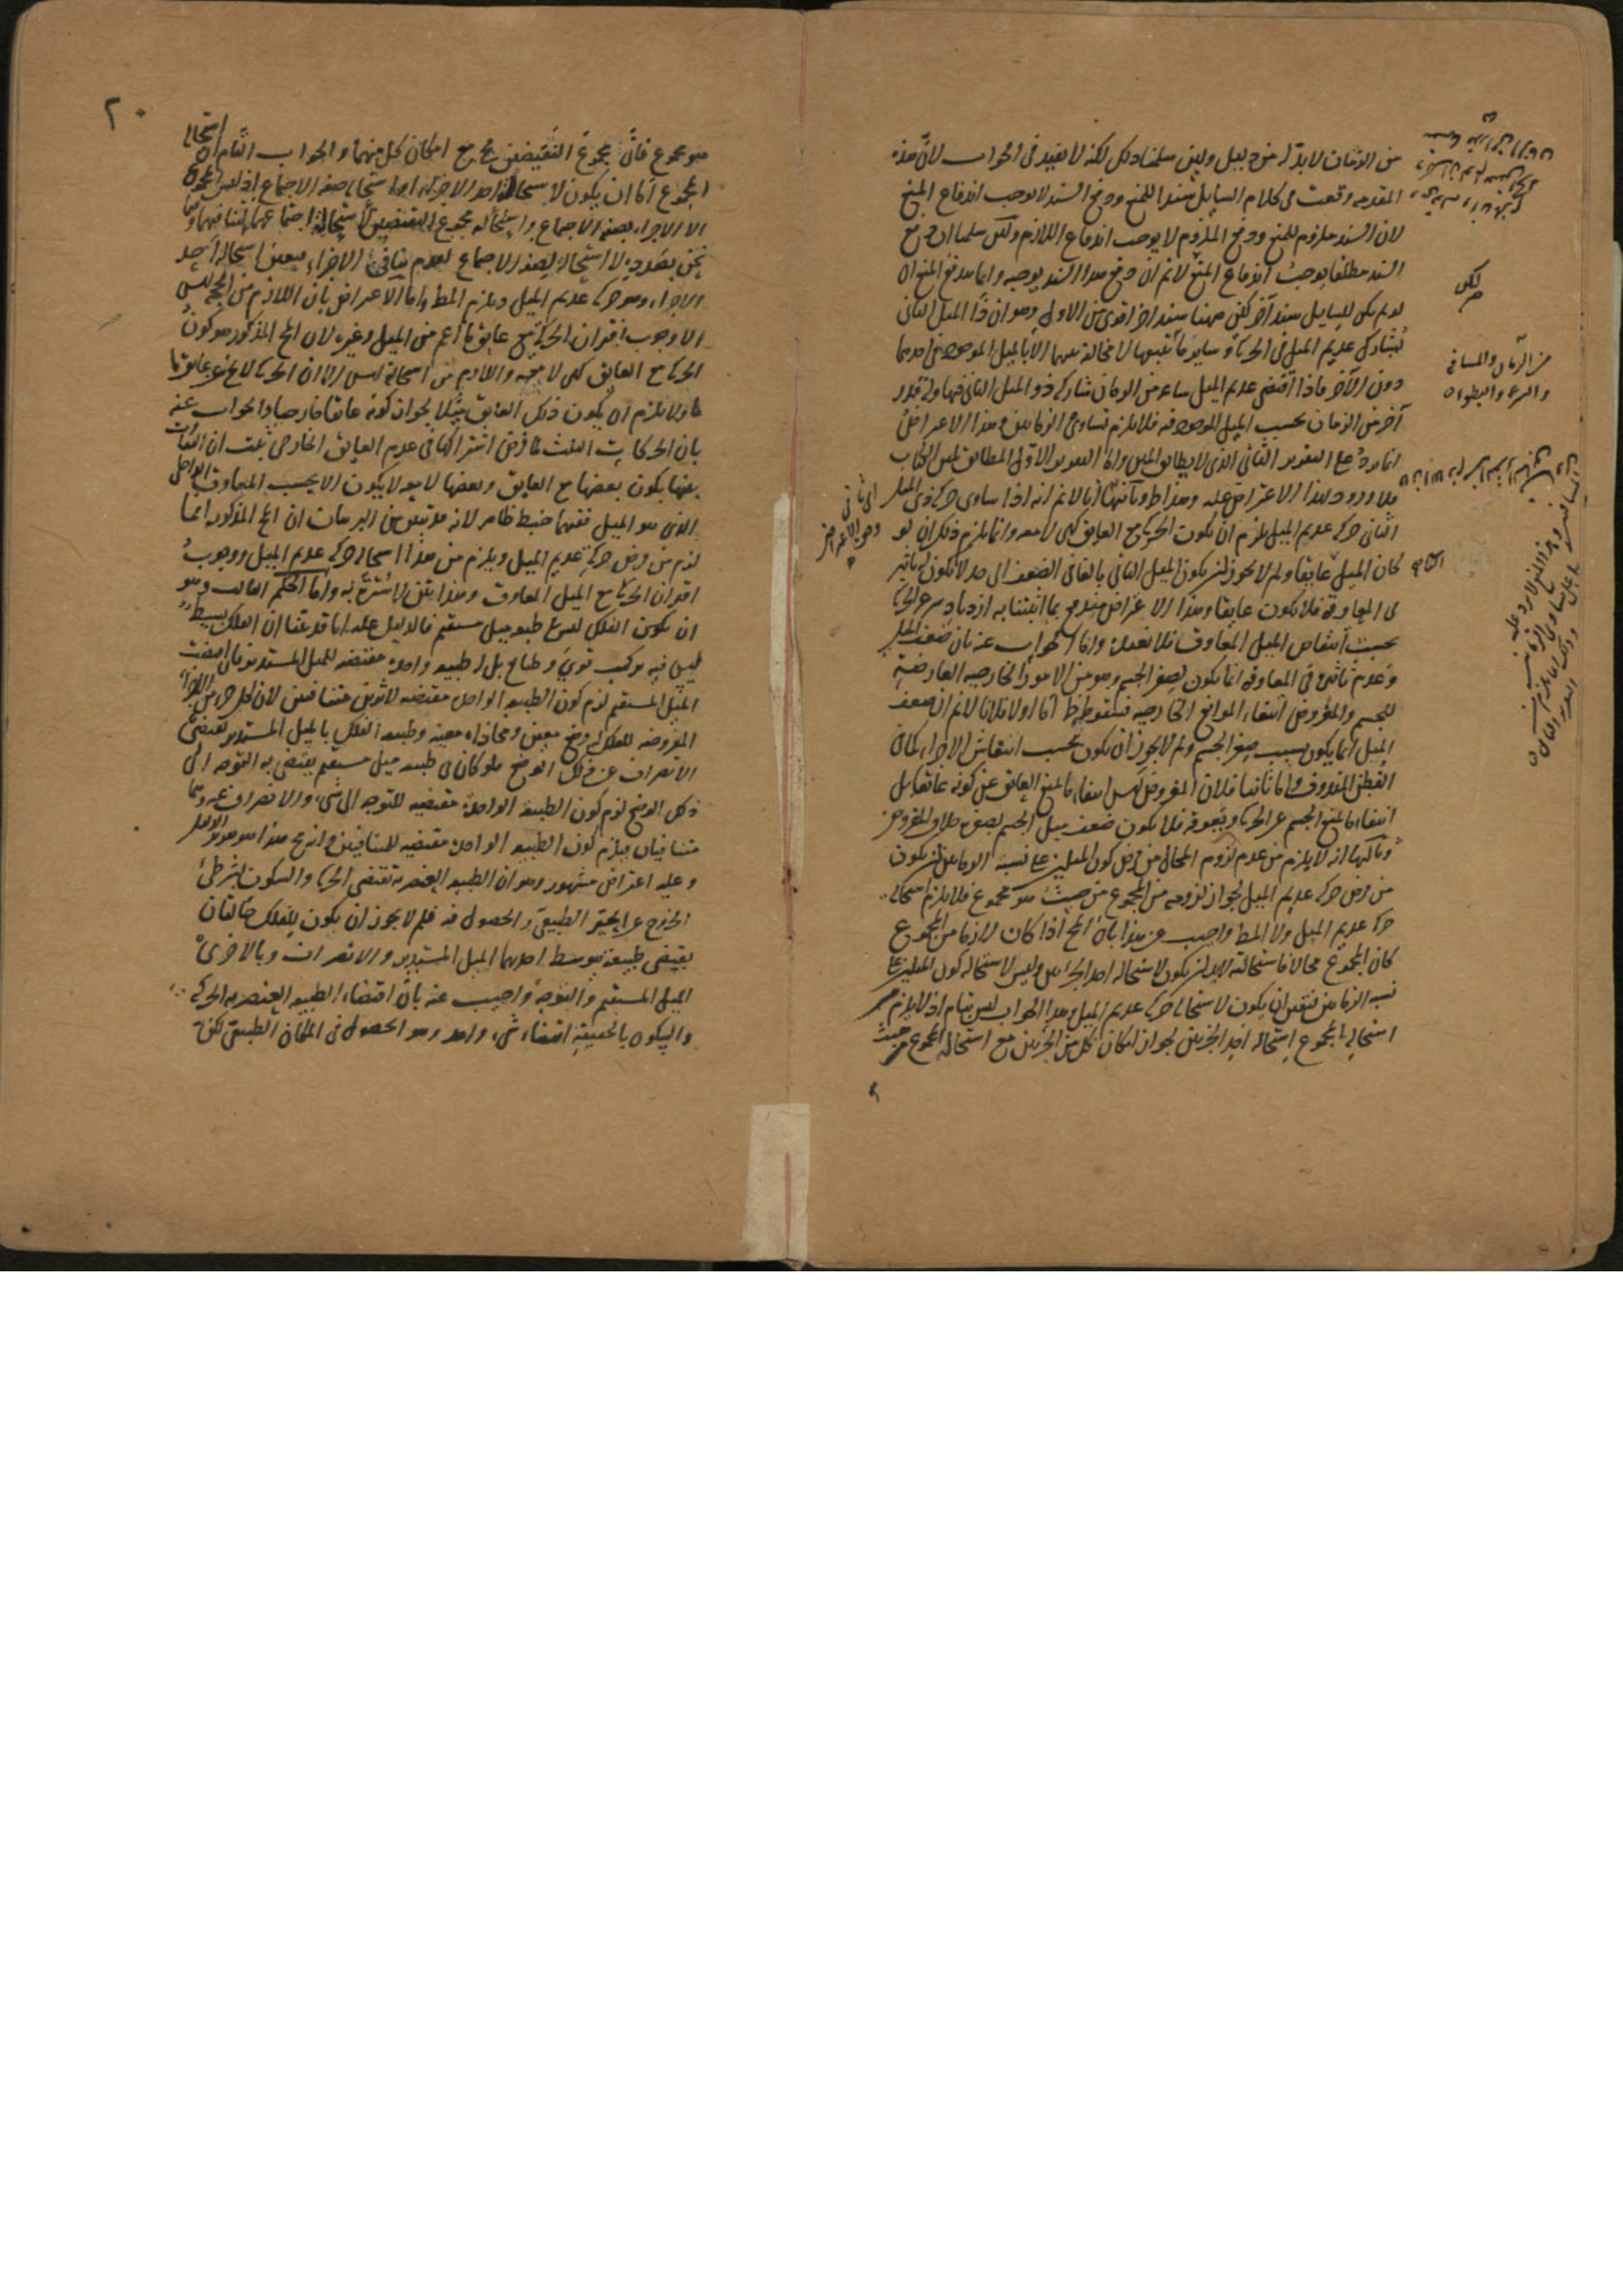 من الزمان لا بد له من دليل ولئن سلمنا ذلك لكنه لا يفيد فى الجواب لان هذه
المقدمه وقعت فى كلام السايل سندا للمنع ودفع السند لا يوجب اندفاع المنع
لان السند ملزوم للمنع ودفع الملزوم لا يوجب اندفاع اللازم ولئن سلمنا ان دفع
السند مطلقا يوجب اندفاع المنع لانم ان دفع هذا السند يوجبه وانما يندفع المنع ان
لو لم يكن للسايل سند آخر لكن ههنا سند آخر اقوى من الاول وهو ان ذا الميل الثانى
يشارك عديم الميل فى الحركة وساير ما يتبعها لا مخالة بينهما الا بالميل الموجود فى احدهما
دون الآخر فاذا اقتضى عديم الميل ساعه من الزمان شاركه ذو الميل الثانى فيها وله قدر
آخر من الزمان بحسب الميل الموجود فيه فلا يلزم تساوى الزمانين وهذا الاعتراض
انما يرد على التقرير الثانى الذى لا يطابق المتن واما التقرير الاول المطابق لمتن الكتاب
فلا ورود لهذا الاعتراض عليه وهذا ظ وثانيها انا لانم انه اذا ساوى حركة ذى الميل
الثانى حركة عديم الميل يلزم ان تكون الحركة مع العايق كهى لا معه وانما يلزم ذلك ان لو
كان الميل عايقا ولم لا يجوز ان يكون الميل الثانى بالغا فى الضعف الى حد لا يكون له تاثير
فى المعاوقة فلا يكون عايقا وهذا الاعتراض مندفع بما اثبتنا به ازدياد سرعة الحركة
بحسب انتقاص الميل المعاوق فلا نعيده واما الجواب عنه بان ضعف الميل
وعدم تاثيره فى المعاوقه انما يكون لصغر الجسم وهو من الامور الخارجيه العارضة
للجسم والمفروض انتفاء الموانع الخارجيه فسقوطه ظ اما اولا فلانا لانم ان ضعف
الميل انما يكون بسبب صغر الجسم ولم لا يجوز ان يكون بحسب انتفاش الاجزاء كما فى
القطن المندوف واما ثانيا فلان المفروض ليس انتفاء ما يمنع العايق عن كونه عايقا بل
انتفاء ما يمنع الجسم عن الحركة ويعوقه فلا يكون ضعف ميل الجسم لصغره خلاف المفروض
وثالثها انه لا يلزم من عدم لزوم المحال من فرض كون الميلين على نسبة الزمانين ان يكون
من فرض حركة عديم الميل لجواز لزومه من المجموع من حيث هو مجموع فلا يلزم استحالة
حركة عديم الميل ولا المط واجيب عن هذا بان المح اذا كان لازما من المجموع
كان المجموع محالا فاستحالته لا بد ان يكون لاستحالة احد الجزئين وليس لاستحالة كون الميلين على
نسبة الزمانين فتعين ان يكون لاستحالة حركة عديم الميل وهذا الجواب ليس بتام اذ لا يلزم من
استحالة المجموع استحالة احد الجزئين لجواز امكان كل من الجزئين مع استحالة المجموع من حيث
لكن
من الزمان والمسافة
والسرعة والبطوء
اى ثانى
وجوه الاعتراض
٢٠
هو مجموع فان مجموع النقيضين مح مع امكان كل منهما والجواب التام ان استحالة
المجموع اما ان يكون لاستحالة احد الاجزاء او لاستحالة صفة الاجتماع اذ ليس المجموع
الا الاجزاء بصفة الاجتماع واستحالة مجموع النقيضين لاستحالة اجتماعهما لتنافيهما وما
نحن بصدده لا استحالة لصفة الاجتماع لعدم تنافى الاجزاء فتعين استحالة احد
الاجزاء وهو حركة عديم الميل ويلزم المط واما الاعتراض بان اللازم من الحجة ليس
الا وجوب اقتران الحركة مع عايق ما اعم من الميل وغيره لان المح المذكور هو كون
الحركة مع العايق كهى لا معه واللازم من استحالته ليس الا ان الحركة لا تخ عن عايق ما
ولا يلزم ان يكون ذلك العايق ميلا لجواز كونه عايقا خارجيا والجواب عنه
بان الحركات الثلث لما فرض اشتراكها فى عدم العايق الخارجى ثبت ان التفاوت
بينها بكون بعضها مع العايق وبعضها لا معه لا يكون الا بحسب المعاوق الداخل
الذى هو الميل ففيه خبط ظاهر لانه قد تبين من البرهان ان المح المذكور انما
لزم من فرض حركة عديم الميل ويلزم من هذا استحالة حركة عديم الميل ووجوب
اقتران الحركة مع الميل المعاوق وهذا متن لا سترة به واما الحكم الثالث وهو
ان يكون الفلك ليس فى طبعه ميل مستقيم فالدليل عليه انا قد بينا ان الفلك بسيط
ليس فيه تركيب قوى وطبايع بل له طبيعه واحدة مقتضيه للميل المستدير فان اقتضت
الميل المستقيم لزم كون الطبيعه الواحدة مقتضيه لاثرين متنافيين لان لكل جزء من الاجزاء
المفروضه للفلك وضع معين ومحاذاه معينه وطبيعه الفلك بالميل المستدير تقتضى
الانصراف عن ذلك الوضع فلو كان فى طبيعه ميل مستقيم يقتضى به التوجه الى
ذلك الوضع لزم كون الطبيعة الواحدة مقتضيه للتوجه الى شىء والانصراف عنه وهما
متنافيان فيلزم كون الطبيعه الواحدة مقتضيه للمتنافيين وانه مح هذا هو
وعليه اعتراض مشهور وهو ان الطبيعه العنصريه تقتضى الحركة والسكون بشرطى
الخروج عن الحيز الطبيعى والحصول فيه فلم لا يجوز ان يكون للفلك حالتان
يقتضى طبيعة بتوسط احديهما الميل المستدير والانصراف وبالاخرى
الميل المستقيم والتوجه واجيب عنه بان اقتضاء الطبيعه العنصريه الحركة
والسكون بالحقيقة اقتضاء شىء واحد وهو الحصول فى المكان الطبيعى لكن